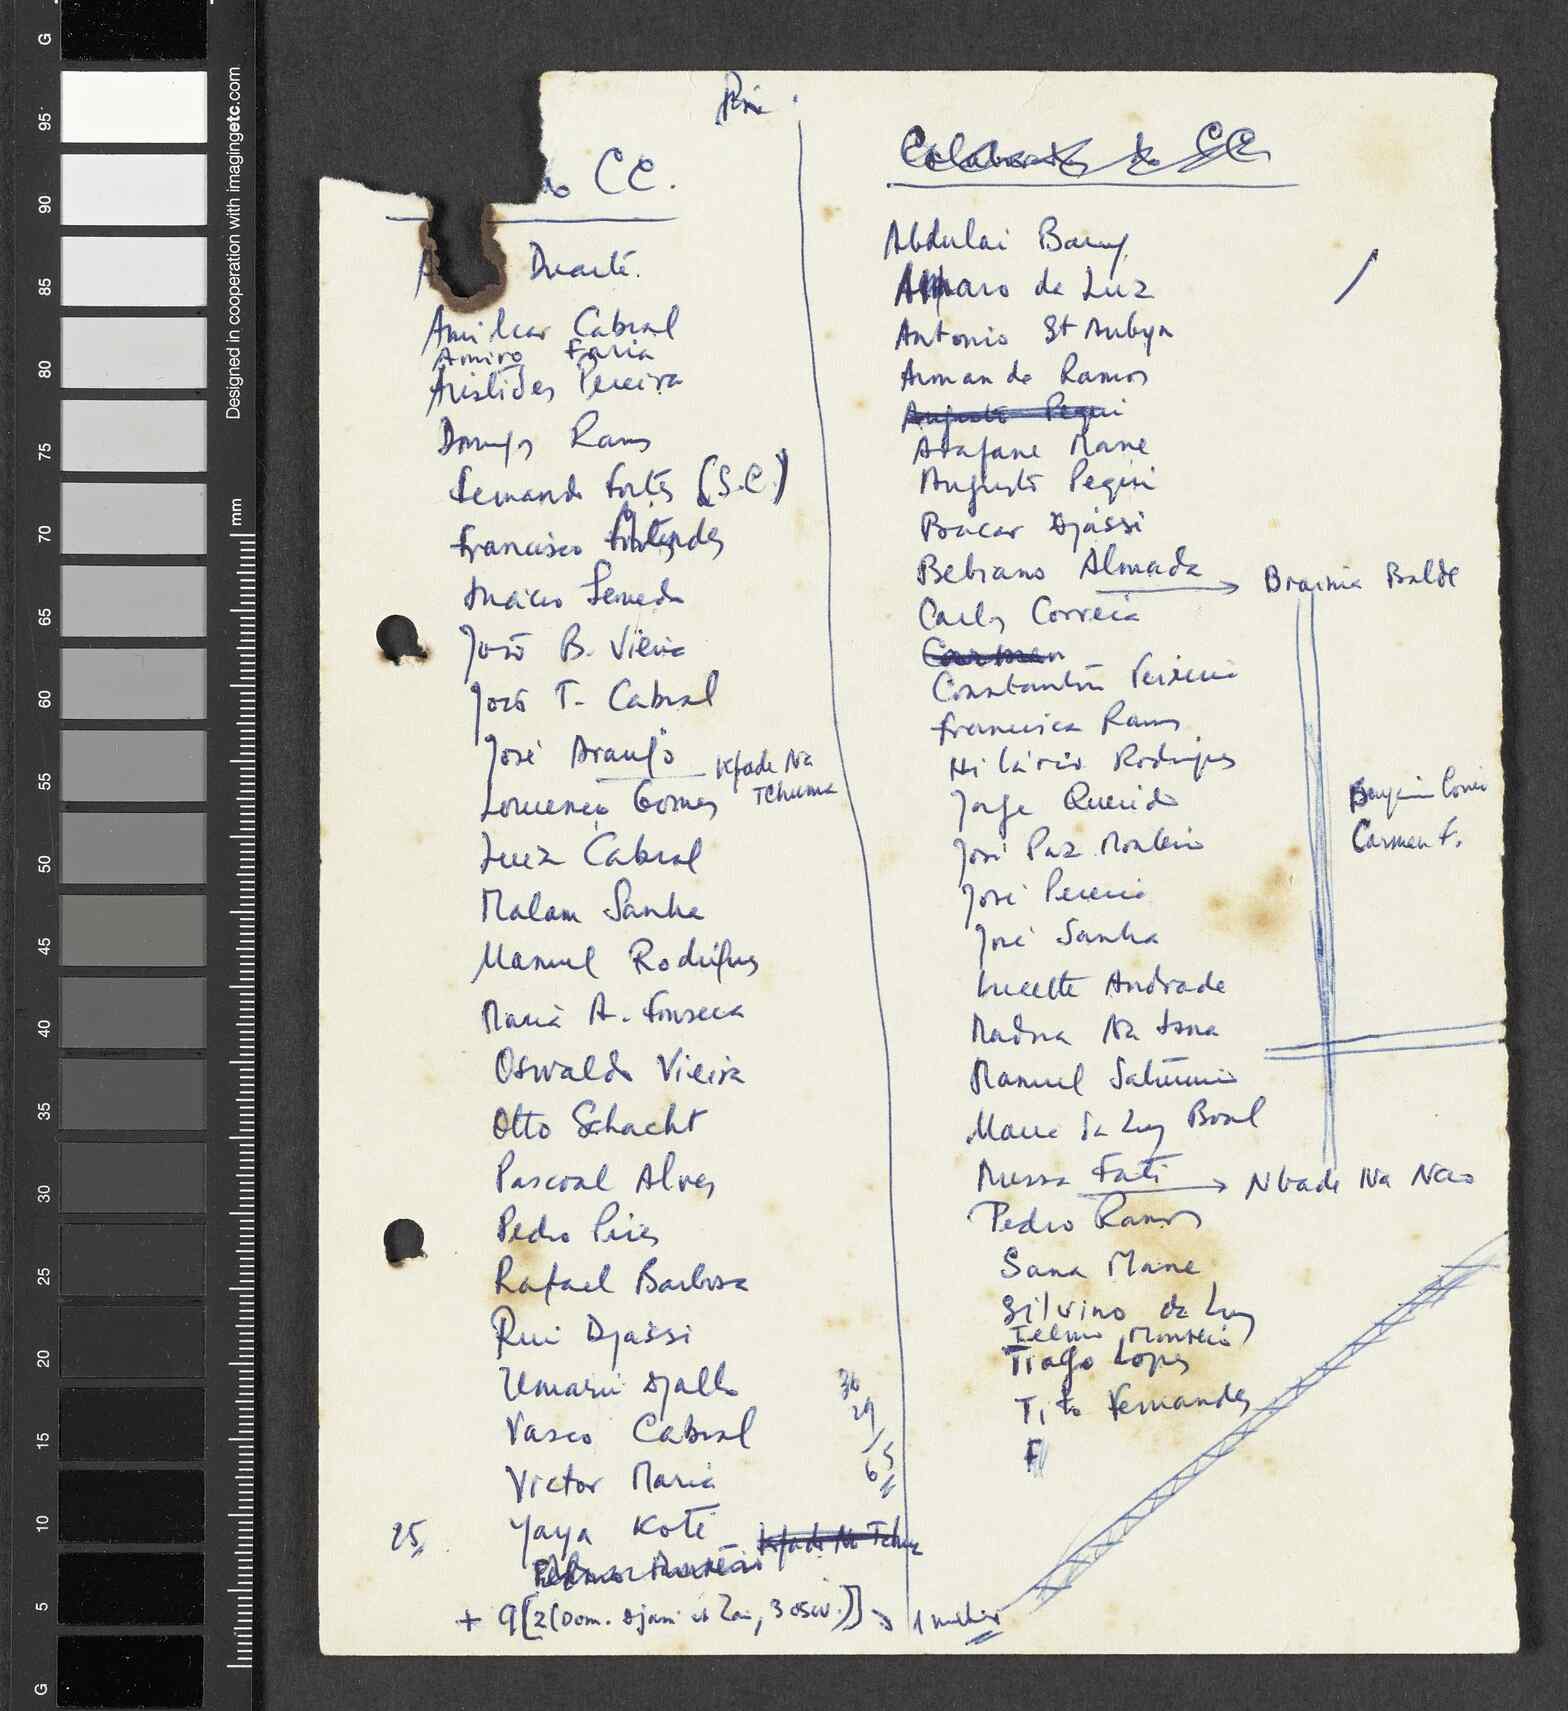 CC.
Duarte.
Amilcar Cabral
Amiro Faria
Aristides Pereira
Domingos Ramos
Fernando Fortes (S.C.)
Francisco Mendes
Inácio Semedo
João B. Vieira
José T. Cabral
José Araujo
Kfade Na
Tchuma
Lourenço Gomes
Luiz Cabral
Malam Sanha
Manuel Rodrigues
Maria A. Fonseca
Oswaldo Vieira
Otto Schacht
Pascoal Alves
Pedro Pires
Rafael Barbosa
Rui Djassi
Umaru Djallo
Vasco Cabral
Victor Maria
25
Yaya Koté
Kfade Na Tchu
+ 9[2(Dom. Djassi et Zai, 3 osw.)]
36
29
65
CC
Abdulai Barry
Amaro da Luz
Antonio St Aubyn
Armando Ramos
Augusto Pequi
Arafane Mane
Augusto Pequi
Bacar Djássi
Bebiano Almada → Braima Balde
Carlos Correia
Carmen
Constantino Teixeira
Francisca Ramos
Hilário Rodrigues
Jorge Querido
José Paz Monteiro
José Pereira
José Sanha
Lucette Andrade
Madna Na Isna
Manuel Saturnino
Maria da Luz Boal
Mussa Fati → Nbade Na Nćao
Pedro Ramos
Sana Mane
Silvino da Luz
Telmo Monteiro
Tiago Lopes
Tito Fernandes
F
Carmen F.
G
95
90
85
80
75
70
65
60
55
50
45
40
35
30
25
20
15
10
5
G
mm
Designed in cooperation with imagingetc.com